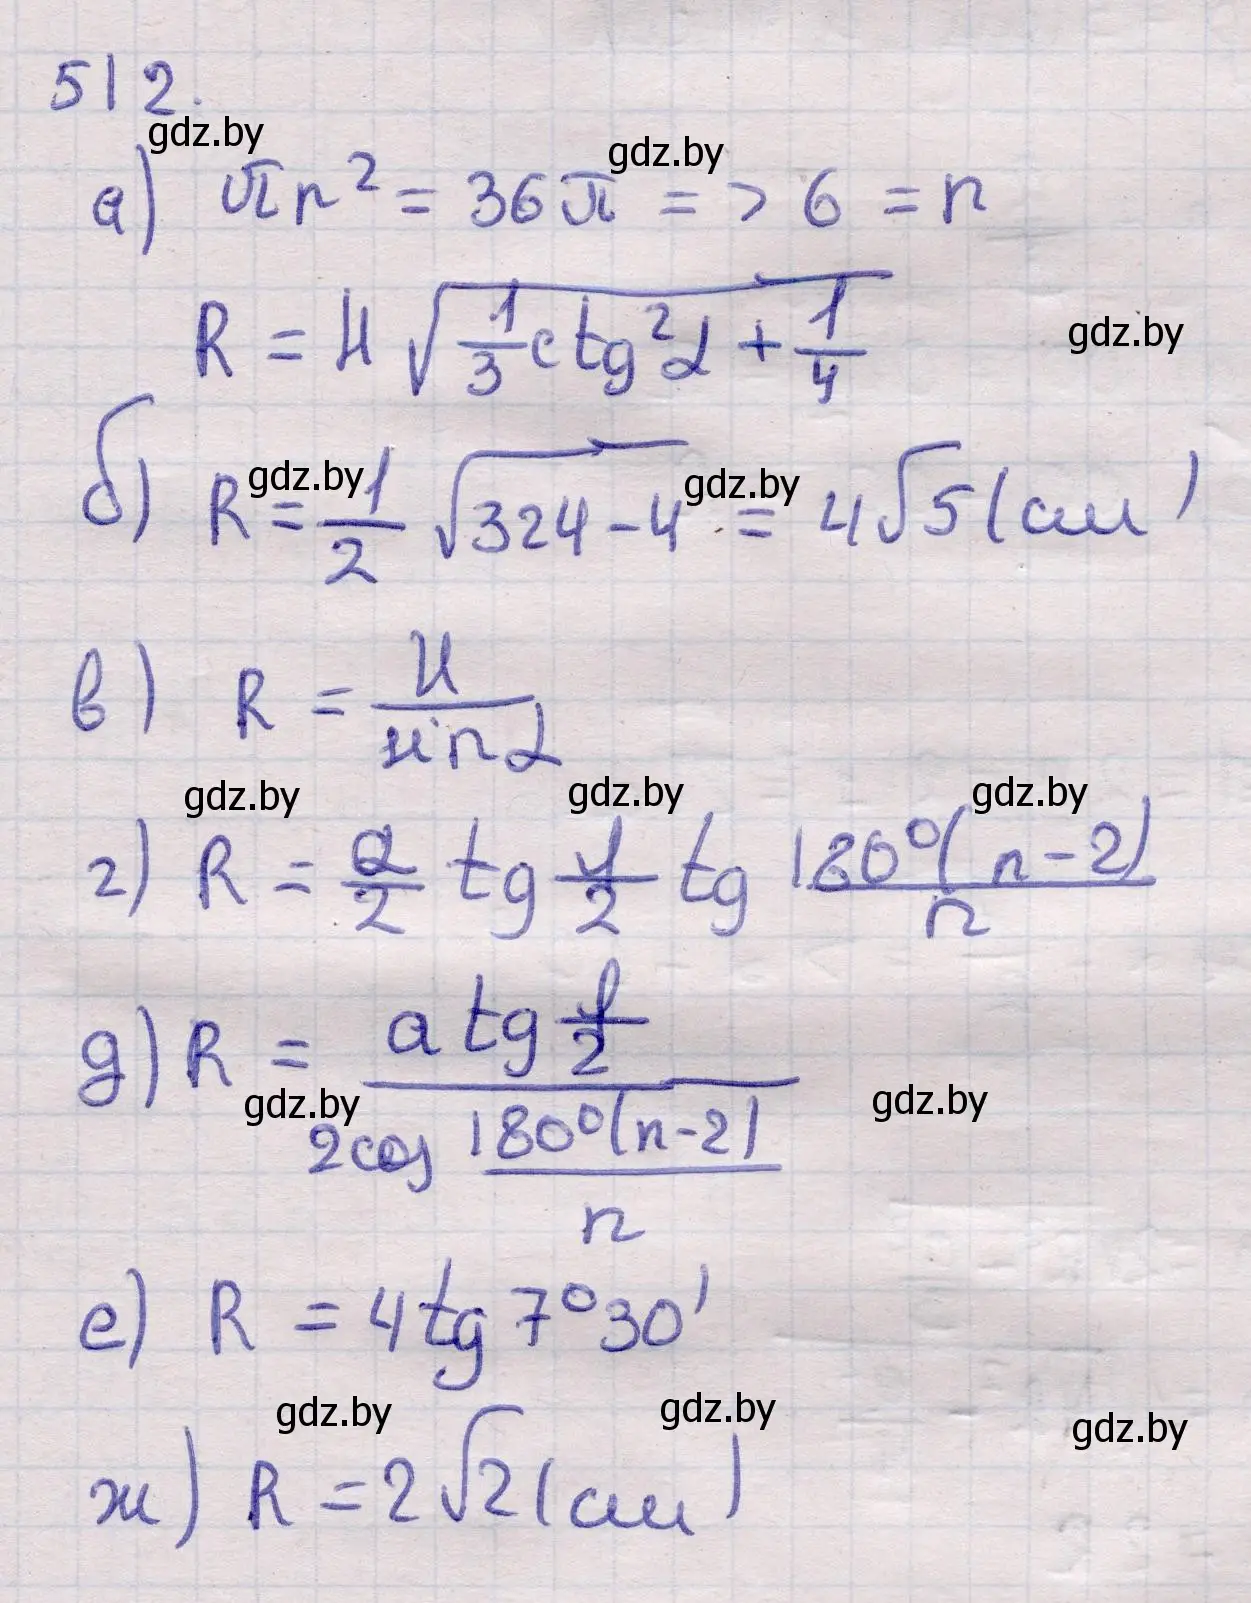 512.
gdz.by
gdz.by
а) πr² = 36π => 6 = r
R = H √(1/3 ctg²α + 1/4)
gdz.by
gdz.by
gdz.by
б) R = 1/2 √(324-4) = 4√5 (см)
в) R = H / sin α
gdz.by
gdz.by
gdz.by
г) R = a/2 tg φ/2 tg 180°(n-2)/n
д) R = a tg φ/2 / 2cos 180°(n-2)/n
gdz.by
gdz.by
е) R = 4 tg 7°30'
gdz.by
gdz.by
gdz.by
ж) R = 2√2 (см)